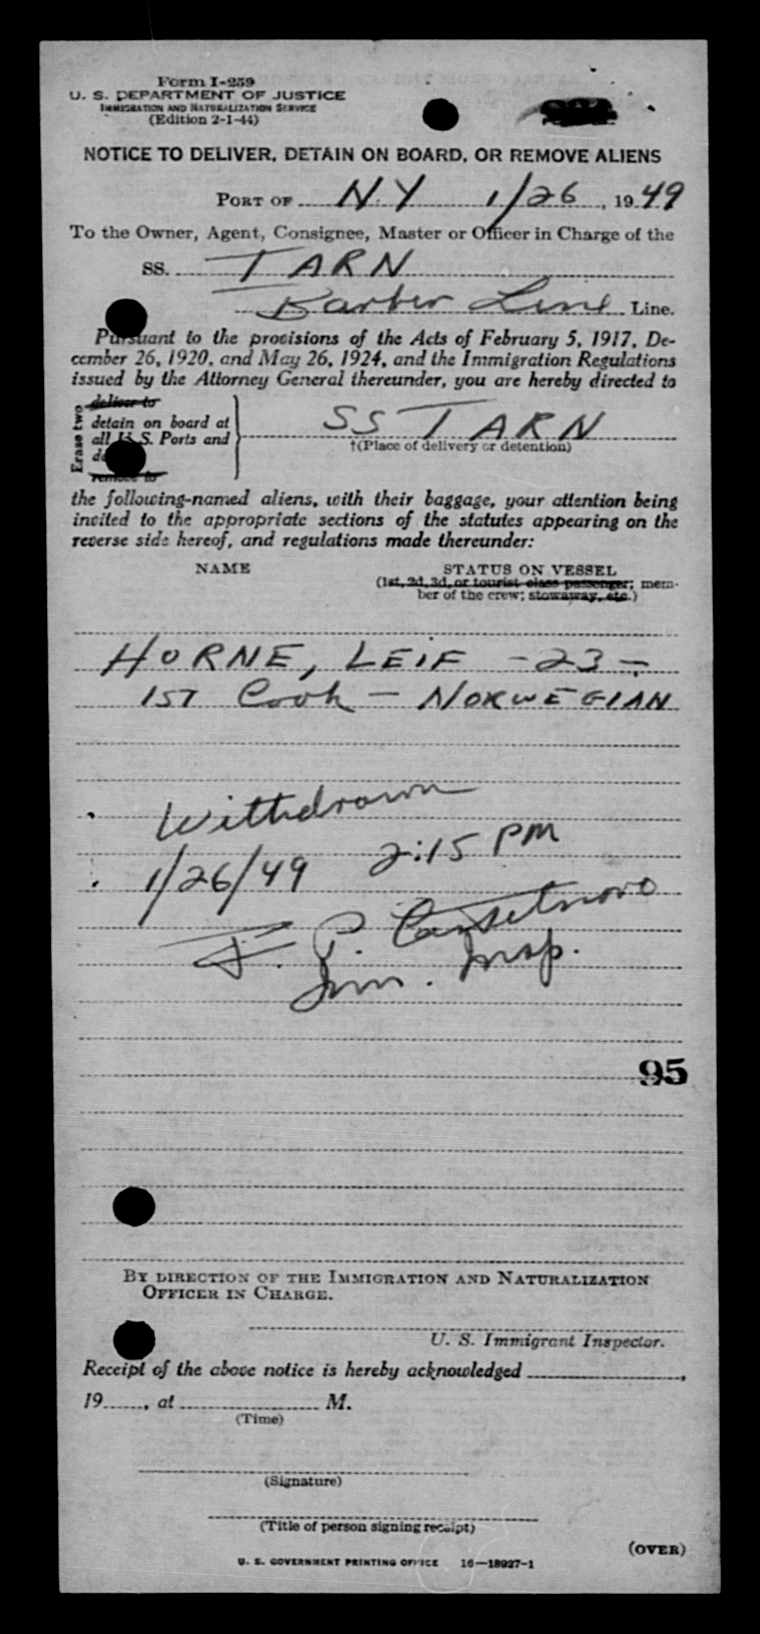 Form I-259
U. S. DEPARTMENT OF JUSTICE
IMMIGRATION AND NATURALIZATION SERVICE
(Edition 2-1-44)
NOTICE TO DELIVER, DETAIN ON BOARD, OR REMOVE ALIENS
PORT OF N.Y 1/26, 1949
To the Owner, Agent, Consignee, Master or Officer in Charge of the
SS. TARN
Barber Line Line.
Pursuant to the provisions of the Acts of February 5, 1917, De-
cember 26, 1920, and May 26, 1924, and the Immigration Regulations
issued by the Attorney General thereunder, you are hereby directed to
Erase two
deliver to
detain on board at
all U.S. Ports and
remove to
SS TARN
†(Place of delivery or detention)
the following-named aliens, with their baggage, your attention being
invited to the appropriate sections of the statutes appearing on the
reverse side hereof, and regulations made thereunder:
NAME STATUS ON VESSEL
(1st, 2d, 3d, or tourist class passenger; mem-
ber of the crew; stowaway, etc.)
HORNE, LEIF - 23 -
1ST Cook - NORWEGIAN
Withdrawn
1/26/49 2:15 PM
F. P.
Imm. Insp.
95
BY DIRECTION OF THE IMMIGRATION AND NATURALIZATION
OFFICER IN CHARGE.
U. S. Immigrant Inspector.
Receipt of the above notice is hereby acknowledged ,
19 , at M.
(Time)
(Signature)
(Title of person signing receipt)
(OVER)
U. S. GOVERNMENT PRINTING OFFICE 16—18927-1